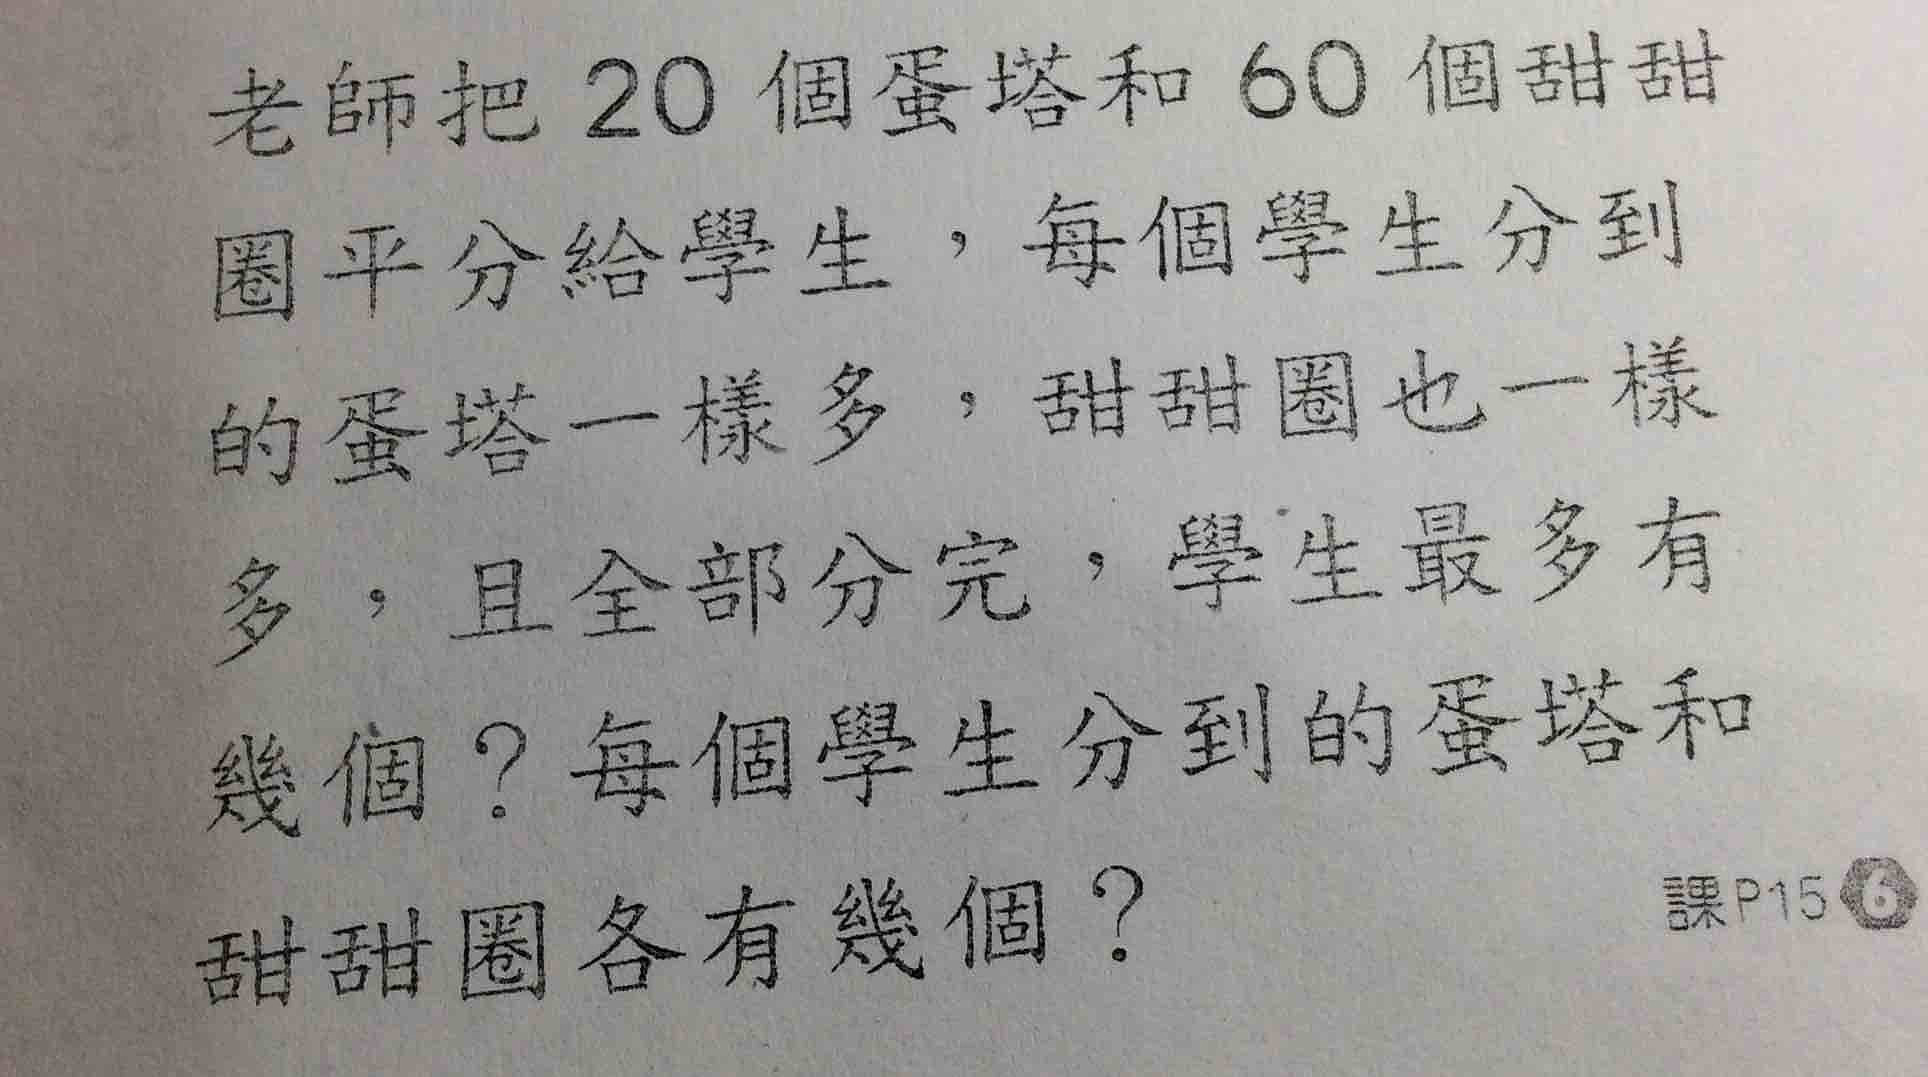 老師把 20 個蛋塔和 60 個甜甜
圈平分給學生，每個學生分到
的蛋塔一樣多，甜甜圈也一樣
多，且全部分完，學生最多有
幾個？每個學生分到的蛋塔和
甜甜圈各有幾個？
課P15 6